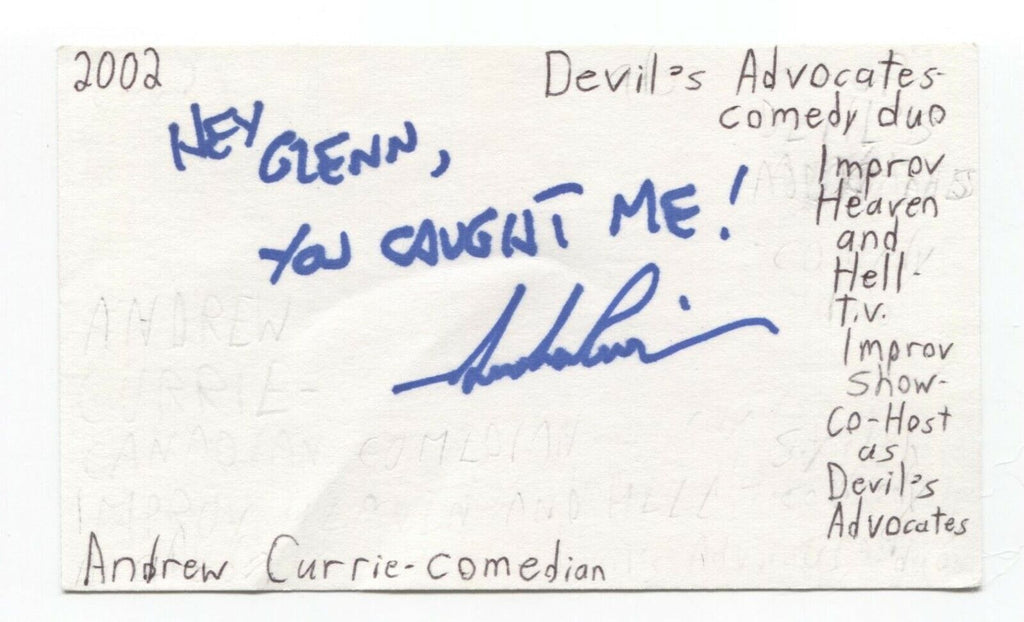 2002
Devil's Advocates-
comedy duo
HEY GLENN,
YOU CAUGHT ME!
Improv
Heaven
and
Hell-
T.V.
Improv
Show-
Co-Host
as
Devil's
Advocates
ANDREW
CURRIE-
CANADIAN COMEDIAN
IMPROV HEAVEN AND HELL
Andrew Currie-comedian